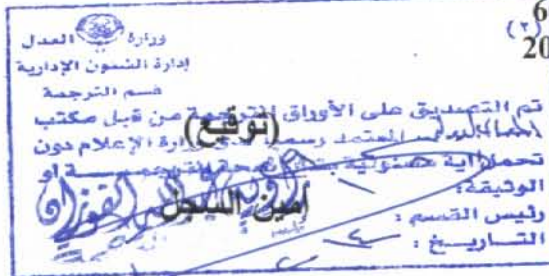 (٢)
6
20
وزارة العدل
إدارة الشئون الإدارية
قسم الترجمة
تم التصديق على الأوراق المترجمة من قبل مكتب
المعتمد رسمياً لدى وزارة الإعلام دون
تحمل أية مسئولية بشأن صحة الترجمة أو
الوثيقة:
(توقيع)
أمين السجل
رئيس القسم :
التاريخ :